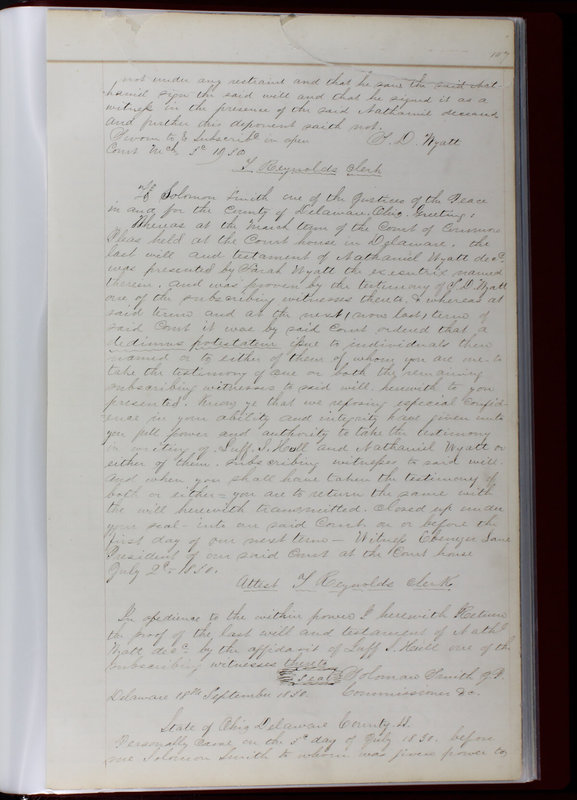 107
not under any restraint and that he saw the said Nat-
haniel sign the said will and that he signed it as a
witness in the presence of the said Nathaniel deceased
and further this deponent saith not.
Sworn to & Subscribd in open
Court Mch 5th 1830
S. D. Wyatt
T Reynolds Clerk
To Solomon Smith one of the Justices of the Peace
in and for the County of Delaware, Ohio, Greeting,
Whereas at the March term of the Court of Common
Pleas held at the Court house in Delaware, the
last will and testament of Nathaniel Wyatt decd.
was presented by Sarah Wyatt the executrix named
therein, and was proven by the testimony of S. D. Wyatt
one of the subscribing witnesses thereto, & whereas at
said term and at the next (now last) term of
said Court it was by said Court ordered that a
dedimus potestatem issue to individuals then
named or to either of them of whom you are one to
take the testimony of one or both the remaining
subscribing witnesses to said will, herewith to you
presented, Know ye that we reposing especial confid-
ence in your ability and integrity have given unto
you full power and authority to take the testimony
in writing of Luff. S. Hull and Nathaniel Wyatt or
either of them, subscribing witnesses to said will.
and when you shall have taken the testimony of
both or either = you are to return the same with
the will herewith transmitted, closed up under
your seal - into our said Court, on or before the
first day of our next term — Witness Ebenezer Lane
President of our said Court at the Court house
July 2d 1830.
Attest T Reynolds Clerk.
In obedience to the within power I herewith Return
the proof of the last will and testament of Nathl
Wyatt decd. by the affidavit of Luff S. Hull one of the
subscribing witnesses thereto
Seal Solomon Smith J.P.
Delaware 18th September 1830. Commissioner &c.
State of Ohio Delaware County Ss.
Personally came, on the 5th day of July 1830. before
me Solomon Smith to whom was given power to